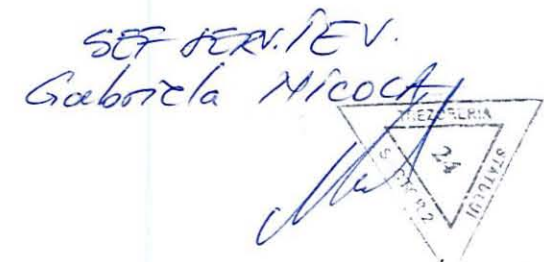 SEF SERV. IEV.
Gabriela MICOCA
TREZORERIA
STATULUI
SECTOR 2
24